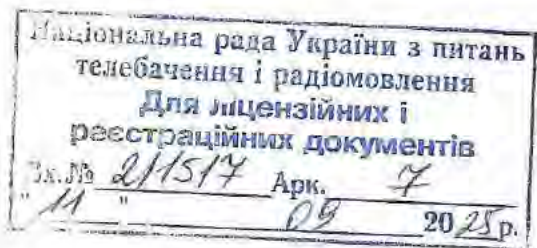 Національна рада України з питань
телебачення і радіомовлення
Для ліцензійних і
реєстраційних документів
Вх.№ 2/1517 Арк. 7
" 11 " 09 2025 р.